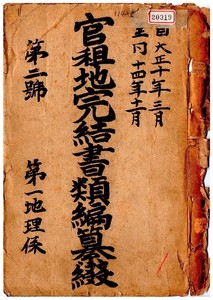 20319
自大正十年三月
至同十四年十一月
官租地完結書類編纂綴
第二號
第一地理係